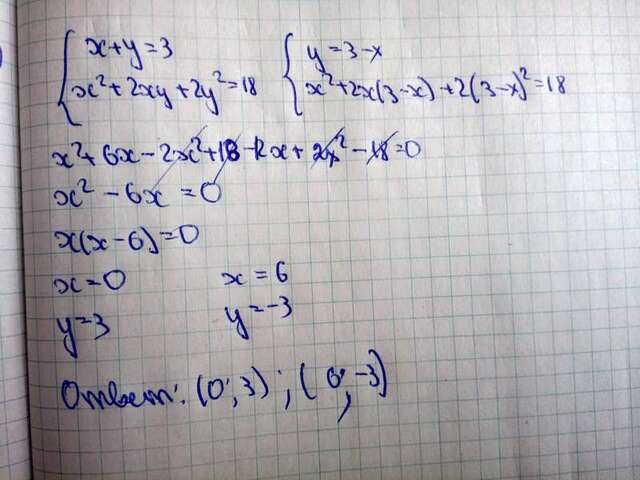 x+y=3 y=3-x
x²+2xy+2y²=18 x²+2x(3-x)+2(3-x)²=18
x²+6x-2x²+18-12x+2x²-18=0
x²-6x=0
x(x-6)=0
x=0 x=6
y=3 y=-3
Ответ: (0;3);(6;-3)